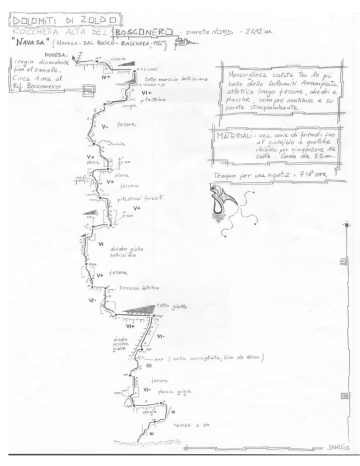 DOLOMITI DI ZOLDO
ROCCHETTA ALTA DEL BOSCONERO - parete NORD - 2412 m
"NAVASA" (NAVASA - DAL BOSCO - BASCHERA - 1965)
DISCESA:
cengia discendente
fino al canale.
Circa 1 ora al
Rif. Bosconero
Meravigliosa salita tra le più
belle delle Dolomiti. Arrampicata
atletica lungo fessure, diedri e
placche, sempre continua e su
parete strapiombante.
MATERIALI: una serie di friends fino
al giallo/blu e qualche
chiodo per rinforzare le
soste. Corde da 55 m.
Tempo per una ripetiz.: 7/8 ore
VI+
pilastrino
V-
fessura
V+
placca
V+
fessura
V+
pilastrini friabili
VI
diedro giallo
V+
fessura
VI-
terrazzo detritico
tetto giallo
VI+
VI-
diedro
giallo
VI
III
fessura
VI-
placca grigia
III